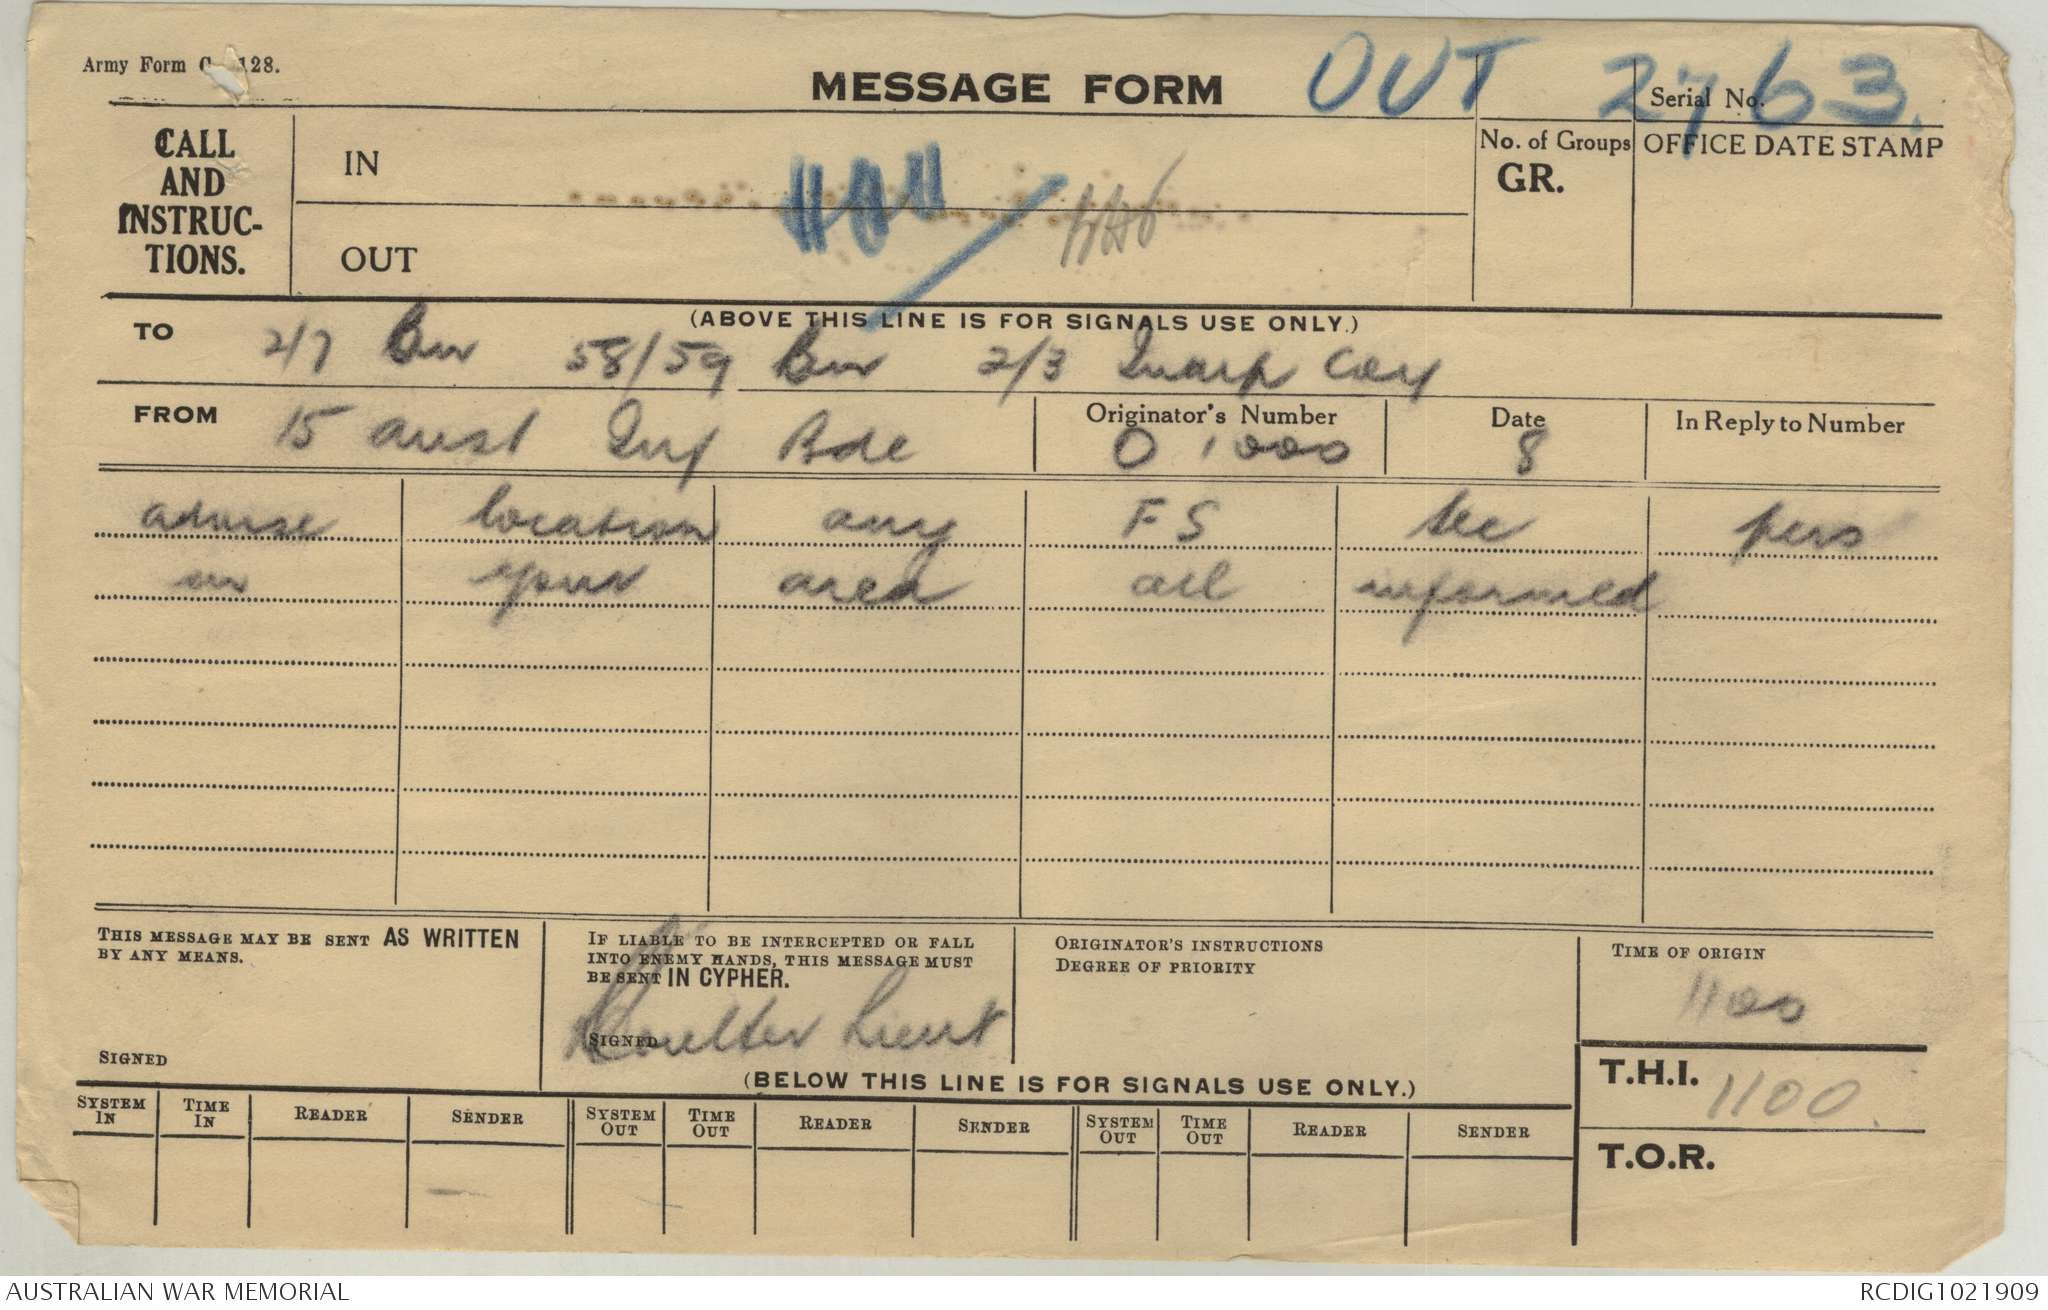 Army Form C. 128.
MESSAGE FORM
OUT 2763.
Serial No.
CALL AND INSTRUC-TIONS.
IN
OUT
No. of Groups
GR.
OFFICE DATE STAMP
(ABOVE THIS LINE IS FOR SIGNALS USE ONLY.)
TO 2/7 Bn 58/59 Bn 2/3 Coy
FROM 15 Aust Inf Bde
Originator's Number O 1000
Date 8
In Reply to Number
advise location any FS Sec pers
in your area all informed
THIS MESSAGE MAY BE SENT AS WRITTEN BY ANY MEANS.
SIGNED
IF LIABLE TO BE INTERCEPTED OR FALL INTO ENEMY HANDS, THIS MESSAGE MUST BE SENT IN CYPHER.
SIGNED Coulter Lieut
ORIGINATOR'S INSTRUCTIONS
DEGREE OF PRIORITY
TIME OF ORIGIN
1100
T.H.I. 1100
T.O.R.
(BELOW THIS LINE IS FOR SIGNALS USE ONLY.)
SYSTEM IN TIME IN READER SENDER SYSTEM OUT TIME OUT READER SENDER SYSTEM OUT TIME OUT READER SENDER
AUSTRALIAN WAR MEMORIAL
RCDIG1021909